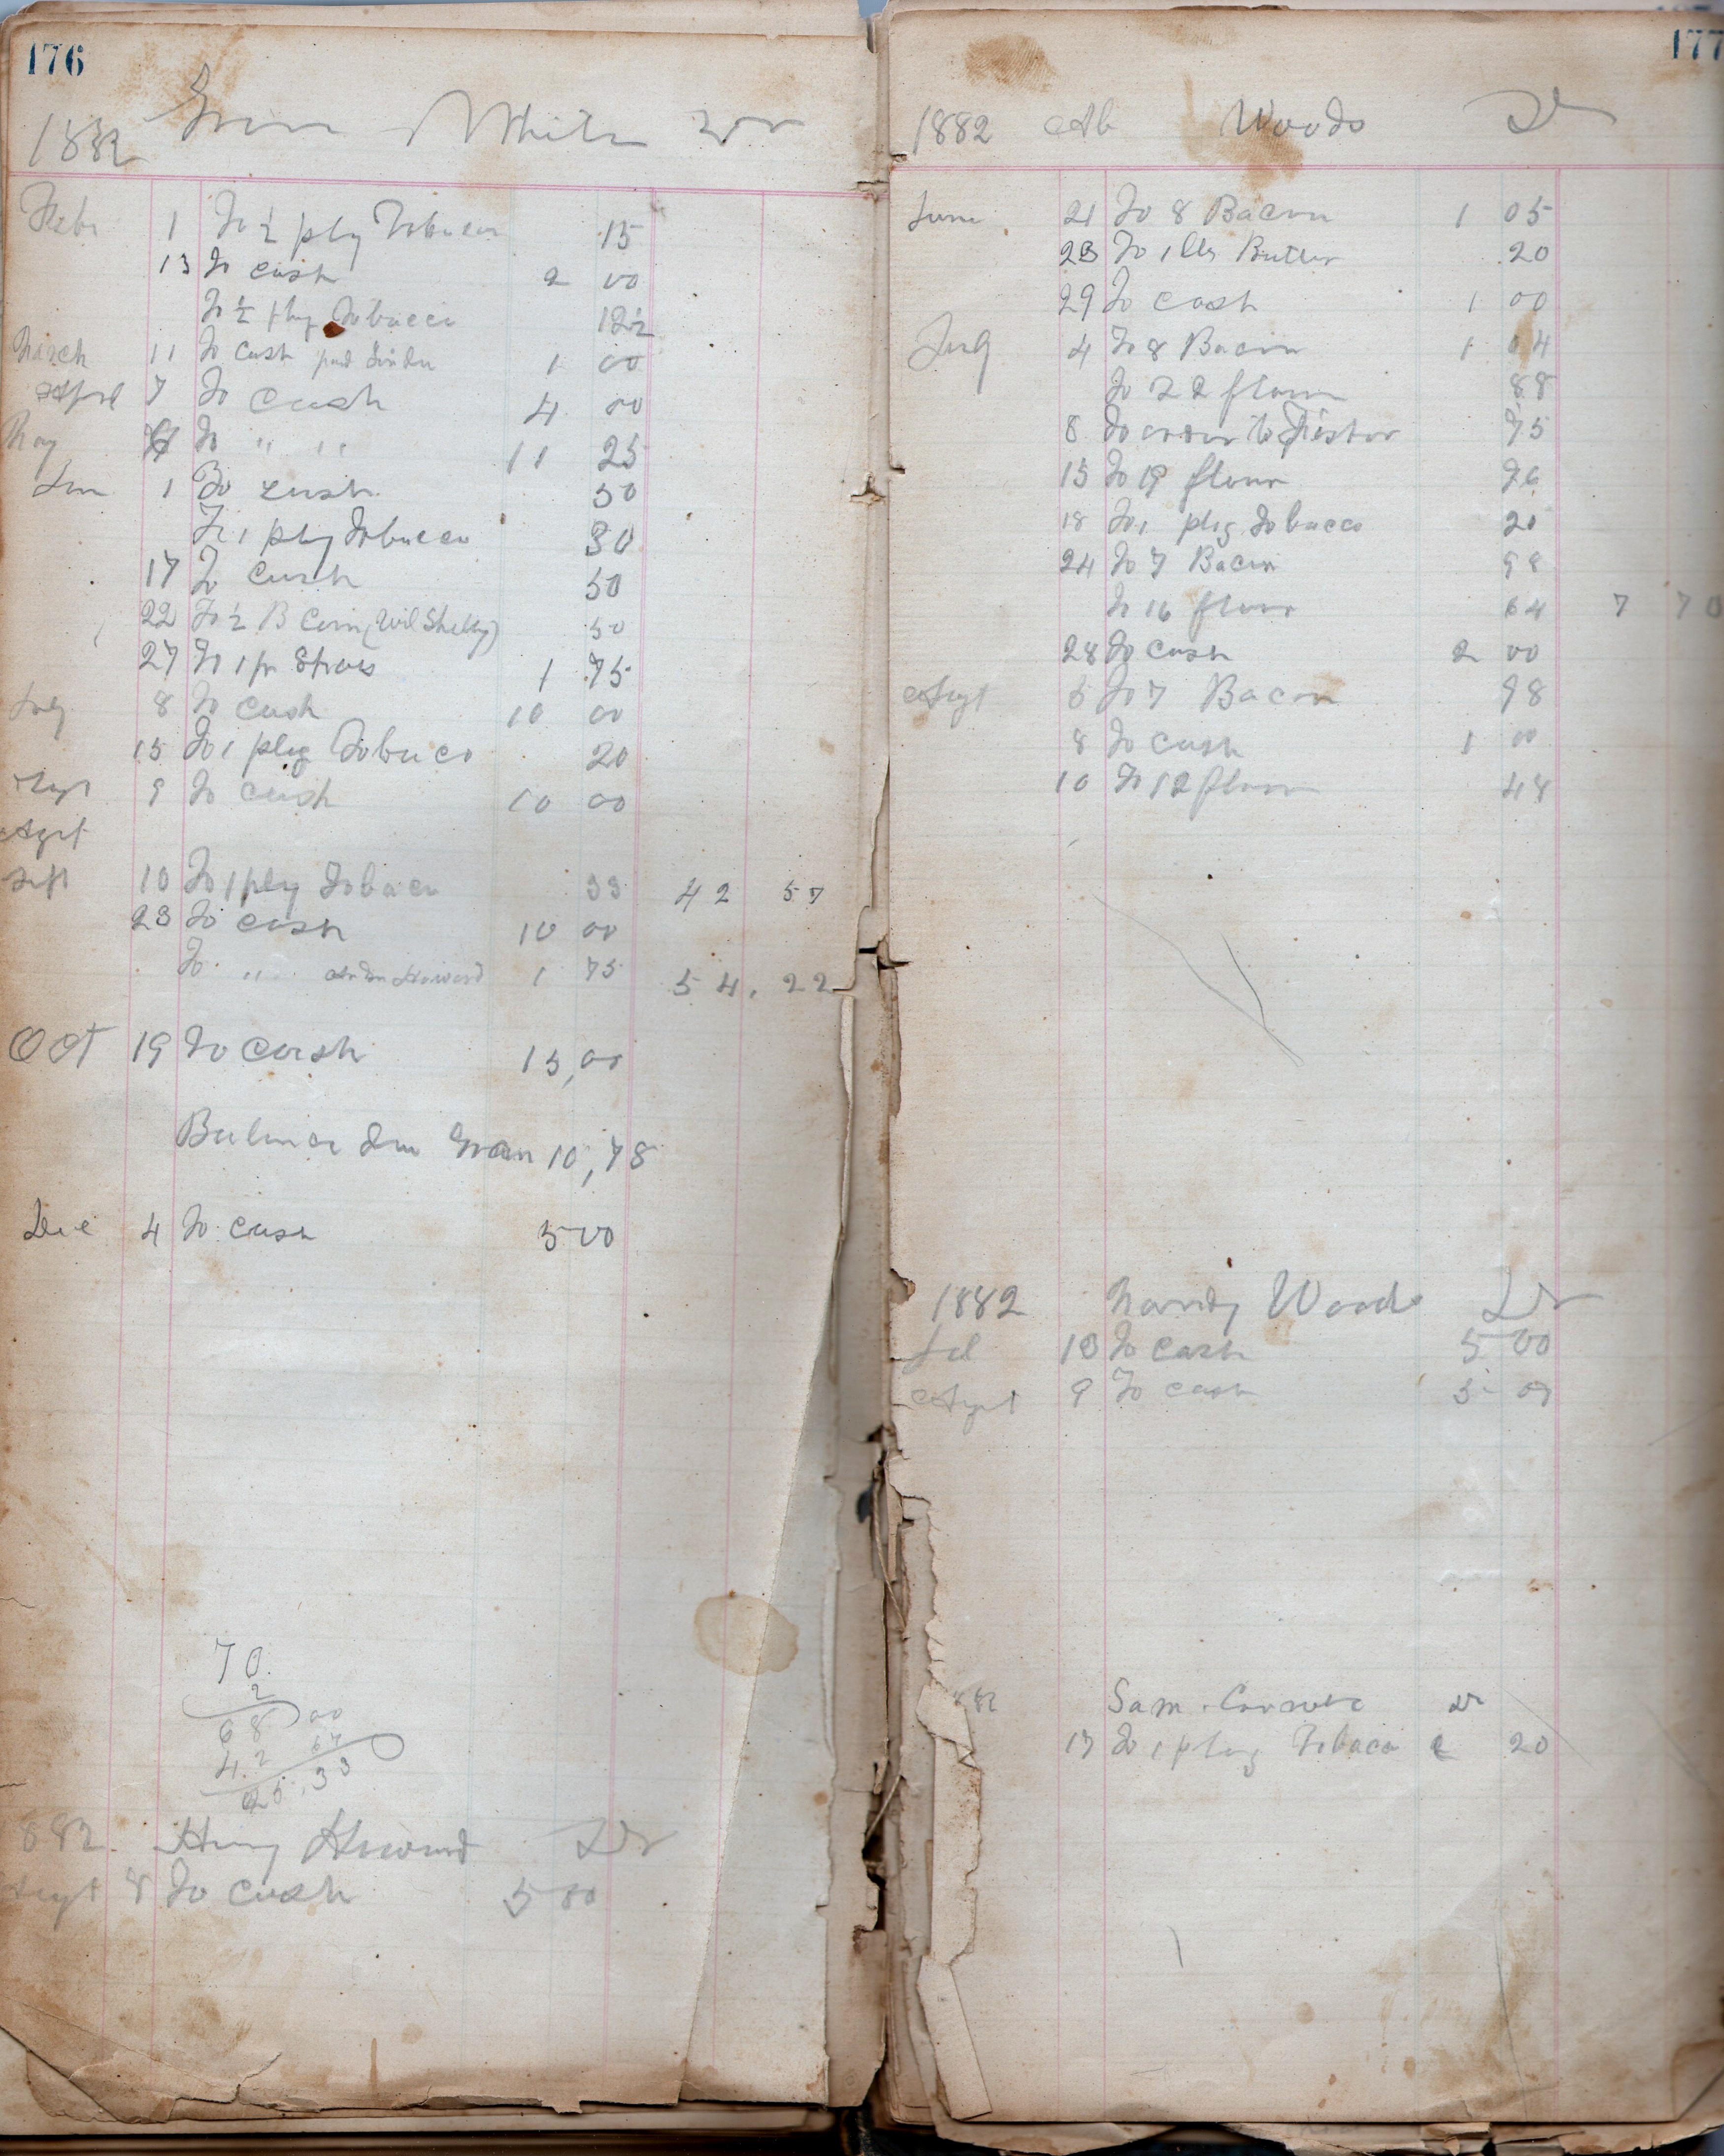 176
1882 Green White Dr
Febr 1 To ½ plug Tobacco 15
13 To cash 2 00
To ½ plug Tobacco 12½
March 11 To Cash paid 1 00
April 7 To Cash 4 00
May To " " 11 25
Jun 1 To cash 50
To 1 plug Tobacco 30
17 To Cash 50
22 To ½ B Corn (Wil Shelby) 50
27 To 1 pr Shoes 1 75
July 8 To Cash 10 00
15 To 1 plug Tobacco 20
9 To cash 10 00
Agst
Sept 10 To 1 plug Tobaco 33 42 57
23 To cash 10 00
To " Howard 1 75 54.22
Oct 19 To Cash 15,00
Balance Due Green 10,78
Dec 4 To cash 5 00
70
2
68 00
42 67
25.33
882 Henry Howard Dr
Augt 8 To cash 5 00
177
1882 Ab Woods Dr
June 21 To 8 Bacon 1 05
23 To 1 lb Butter 20
29 To Cash 1 00
July 4 To 8 Bacon 1 04
To 22 flour 88
8 To order to 75
15 To 19 flour 76
18 To 1 plug Tobacco 20
24 To 7 Bacon 98
To 16 flour 64 7 70
28 To Cash 2 00
Augt 5 To 7 Bacon 98
8 To Cash 1 00
10 To 12 flour 48
1882 Handy Woods Dr
Jul 18 To Cash 5 00
Augt 9 To Cash 5 00
882 Sam Dr
17 To 1 plug Tobaco 20